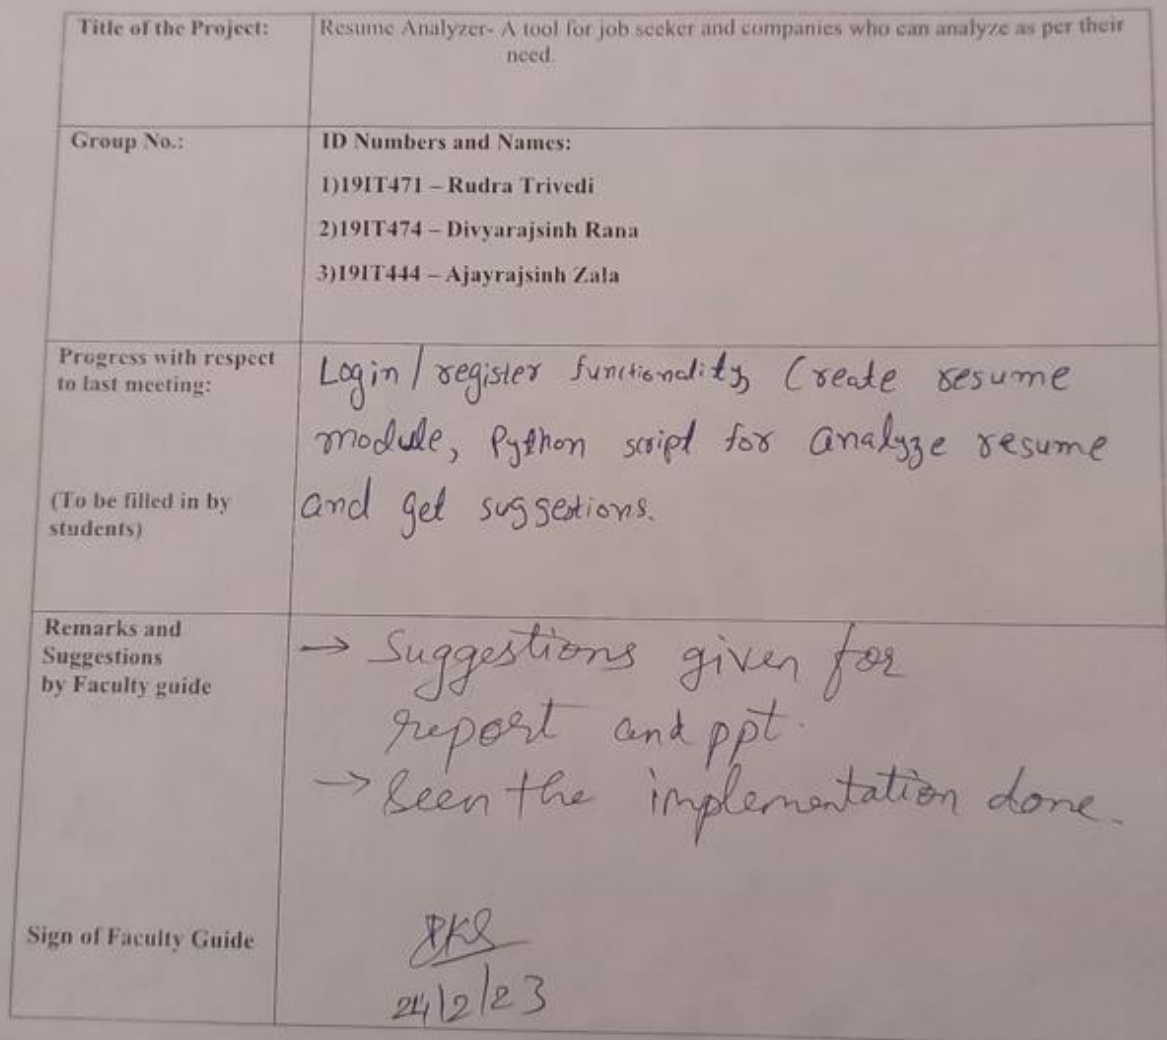 Title of the Project:
Resume Analyzer- A tool for job seeker and companies who can analyze as per their
need.
Group No.:
ID Numbers and Names:
1)19IT471 – Rudra Trivedi
2)19IT474 – Divyarajsinh Rana
3)19IT444 – Ajayrajsinh Zala
Progress with respect
to last meeting:
(To be filled in by
students)
Login/register functionality, Create resume
module, Python script for analyze resume
and get suggestions.
Remarks and
Suggestions
by Faculty guide
→ Suggestions given for
report and ppt.
→ Seen the implementation done.
Sign of Faculty Guide
24/2/23